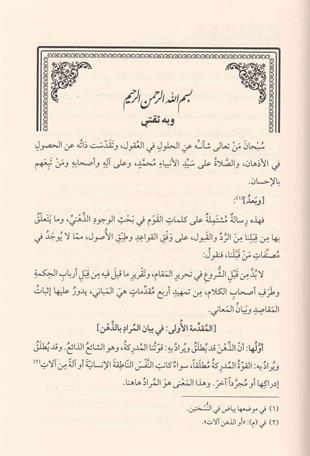 بسم الله الرحمن الرحيم
وبه ثقتي
سُبْحَانَ مَنْ تعالى شأنُه عنِ الحلولِ في العُقول، وتقدَّسَت ذاتُه عنِ الحصولِ
في الأذهان، والصَّلاةُ على سيِّدِ الأنبياءِ مُحمَّدٍ، وعلى آلِهِ وأصحابِهِ ومَنْ تَبِعَهم
بالإحسان.
[وبعدُ](١):
فهذه رسالةٌ مُشتمِلةٌ على كلماتِ القَوْمِ في بَحْثِ الوجودِ الذِّهنيِّ، وما يتعلَّقُ
بها مِن قِبَلِنا مِنَ الرَّدِّ والقَبول، على وَفْقِ القواعدِ وطِبْقِ الأُصول، ممّا لا يُوجَدُ في
مصنَّفاتِ مَنْ قَبْلَنا، فنقولُ:
لا بُدَّ مِن قَبْلِ الشُّروعِ في تحريرِ المَقام، وتقريرِ ما قيلَ فيه مِن قِبَلِ أربابِ الحِكمةِ
وطَرَفِ أصحابِ الكلام، مِن تمهيدِ أربعِ مُقدِّماتٍ هيَ المَباني، يدورُ عليها إثباتُ
المَقاصِدِ وبَيانُ المَعاني.
[المُقدِّمة الأُولى: في بيان المُراد بالذِّهْن]
أوَّلُها: أنَّ الذِّهنَ قد يُطلَقُ ويُرادُ به: قوَّتُنا المُدرِكةُ، وهو الشائعُ الذائعُ. وقد يُطلَقُ
ويُرادُ به: القوَّةُ المُدرِكةُ مُطلَقاً، سواءٌ كانتِ النَّفْسَ الناطِقةَ الإنسانيّةَ أو آلةً مِن آلاتِ(٢)
إدراكِها أو مُجرَّداً آخرَ. وهذا المَعْنى هو المُرادُ هاهنا.
(١) في موضعها بياض في النُّسختين.
(٢) في (م): «أو الذهن آلات».